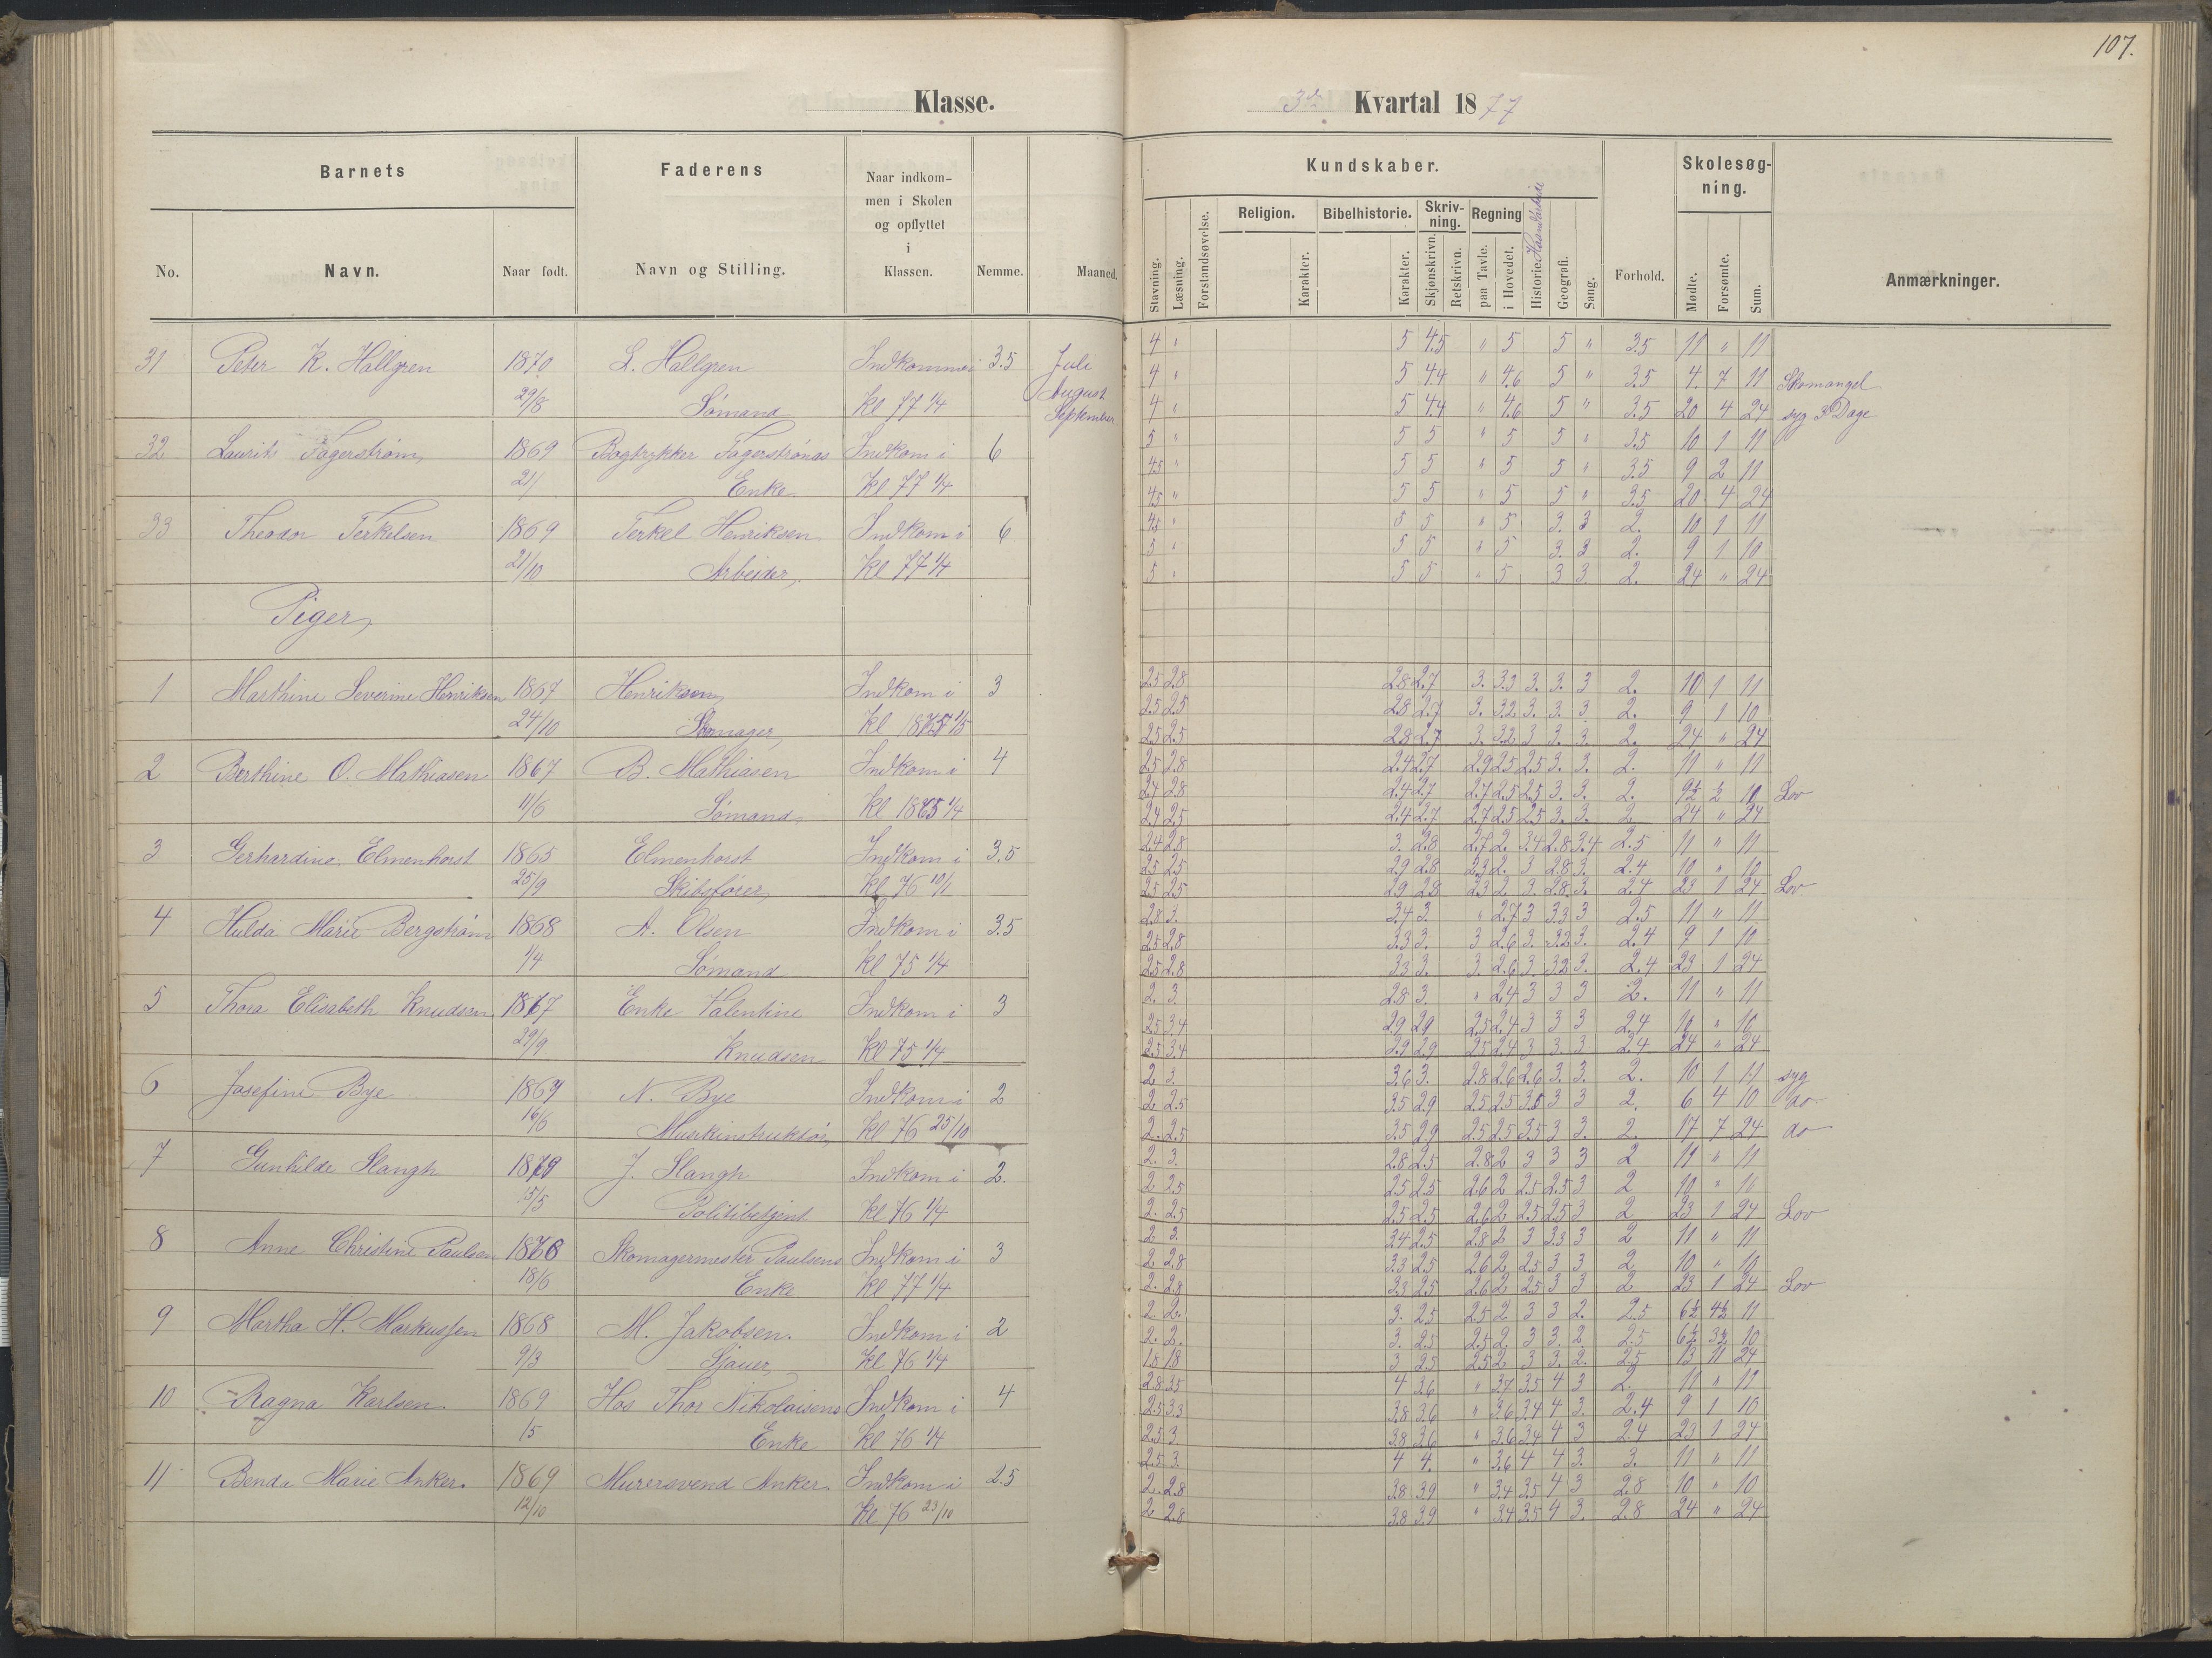 107.
Klasse.
3die Kvartal 1877
Barnets
Faderens
Naar indkommen i Skolen og opflyttet i Klassen.
No. Navn. Naar født. Navn og Stilling. Nemme. Maaned.
Kundskaber.
Skolesøgning.
Stavning. Læsning. Forstandsøvelse. Religion. Karakter. Bibelhistorie. Karakter. Skrivning. Skjønskrivn. Retskrivn. Regning paa Tavle. i Hovedet. Historie. Haandarbeide Geografi. Sang. Forhold. Mødte. Forsømte. Sum. Anmærkninger.
31 Peter K. Hallgren 1870 L. Hallgren Indkommen 3.5 Juli
29/8 Sømand Kl 77 1/4 August
September
32 Laurits Fagerstrøm 1869 Bogtrykker Fagerstrøms Indkom i 6
21/ Enke Kl 77 1/4
33 Theodor Terkelsen 1869 Terkel Henriksen Indkom i 6
21/10 Arbeider, Kl 77 1/4
Piger,
1 Marthine Severine Henriksen 1867 Henriksen, Indkom i 3
24/10 Skomager,
2 Berthine O. Mathiasen 1867 B. Mathiasen Indkom i 4
11/6 Sømand,
3 Gerhardine Elmenhorst 1865 Elmenhorst Indkom i 3.5
25/9 Skibsfører, Kl 76
4 Hulda Marie Bergstrøm 1868 A. Olsen Indkom i 3.5
1/4 Sømand Kl 75 1/4
5 Thora Elisabeth Knudsen 1867 Enke Valentine Indkom i 3
29/9 Knudsen Kl 75 1/4
6 Josefine Bye 1869 N. Bye Indkom i 2
16/6 Musikinstruktør, Kl 76 25/10
7 Gunhilde Slangh J. Slangh Indkom i 2.
15/5 Politibetjent Kl 76 1/4
8 Anne Christine Paulsen 1868 Skomagermester Paulsens Indkom i 3
18/6 Enke Kl 77 1/4
9 Martha H. Markussen 1868 M. Jakobsen. Indkom i 2
9/3 Sjauer, Kl 76 1/4
10 Ragna Karlsen. 1869 Hos Thor Nikolaisens Indkom i 4
/5 Enke Kl 76 1/4
11 Benda Marie Anker. 1869 Murersvend Anker. Indkom i 2.5
12/10 Kl 76 23/10
4 " 5 4.5 " 5 5 " 3.5 11 " 11
4 " 5 4.4 " 4.6 5 " 3.5 4. 7 11 Skomangel
4 " 5 4.4 " 4.6 5 " 3.5 20 4 24 syg 3 Dage
5 " 5 5 " 5 5 " 3.5 10 1 11
4.5 " 5 5 " 5 5 " 3.5 9 2 11
4.5 " 5 5 " 5 5 " 3.5 20 4 24
4.5 " 5 5 " 5 3. 3 2. 10 1 11
5 " 5 5 " 5 3. 3 2. 9 1 10
5 " 5 5 " 5 3 3. 2. 24 " 24
2.5 2.8 2.8 2.7 3. 3.3 3. 3. 3 2. 10 1 11
2.5 2.5 2.8 2.7 3. 3.2 3. 3. 3 2. 9 1 10
2.5 2.5 2.8 2.7 3. 3.2 3 3. 3. 2. 24 " 24
2.5 2.8 2.4 2.7 2.9 2.5 2.5 3. 3. 2. 11 " 11
2.4 2.8 2.4 2.7 2.7 2.5 2.5 3. 3. 2. 9½ ½ 10 Lov
2.4 2.5 2.4 2.7 2.7 2.5 2.5 3. 3. 2 24 " 24
2.4 2.8 3. 2.8 2.7 2. 3.4 2.8 3.4 2.5 11 " 11
2.5 2.5 2.9 2.8 2.3 2. 3 2.8 3. 2.4 10 " 10
2.5 2.5 2.9 2.8 2.3 2 3. 2.8 3. 2.4 23 1 24 Lov
2.8 3. 3.4 3. " 2.7 3 3.3 3 2.5 11 " 11
2.5 2.8 3.3 3. 3 2.6 3. 3.2 3. 2.4 9 1 10
2.5 2.8 3.3 3. 3 2.6 3. 3.2 3. 2.4 23 1 24
2. 3. 2.8 3. " 2.4 3 3 3 2. 11 " 11
2.5 3.4 2.9 2.9 2.5 2.4 3 3 3 2.4 10 " 10
2.5 3.4 2.9 2.9 2.5 2.4 3 3. 3 2.4 24 " 24
2 3. 3.6 3. 2.8 2.6 2.6 3. 3. 2. 10 1 11 syg
2 2.5 3.5 2.9 2.5 2.5 3 3 2. 6 4 10 do
2. 2.5 3.5 2.9 2.5 2.5 3.5 3 3. 2. 17 7 24 do
2. 3. 2.8 2.5 2.8 2 3 3 3 2 11 " 11
2 2.5 2.5 2.5 2.6 2 2.5 2.5 3 2 10 " 10
2. 2.5 2.5 2.5 2.6 2 2.5 2.5 3 2 23 1 24 Lov
2 3. 3.4 2.5 2.8 2 3 3.3 3 2 11 " 11
2 2.8 3.3 2.5 2.6 2 2.5 3 3 2 10 " 10
2. 2.8 3.3 2.5 2.6 2 2.5 3 3 2 23 1 24 Lov
2 2. 3. 2.5 2.5 2 3 3 2. 2.5 6½ 4½ 11
2. 2. 3. 2.5 2.5 2 3 3. 2 2.5 6½ 3½ 10
1.8 1.8 3 2.5 2.5 2 3 3. 2 2.5 13 11 24
2.8 3.5 4 3.6 " 3.7 3.5 4 3 2. 11 " 11
2.5 3.3 3.8 3.6 " 3.6 3.4 4 3. 2.4 9 1 10
2.5 3. 3.8 3.6 " 3.6 3.4 4 3 2.4 23 1 24
2.5 3. 4 4. " 3.6 4 4 3. 3. 11 " 11
2. 2.8 3.8 3.9 " 3.4 3.5 4 3 2.8 10 " 10
2 2.8 3.8 3.9 " 3.4 3.5 4 3. 2.8 24 " 24